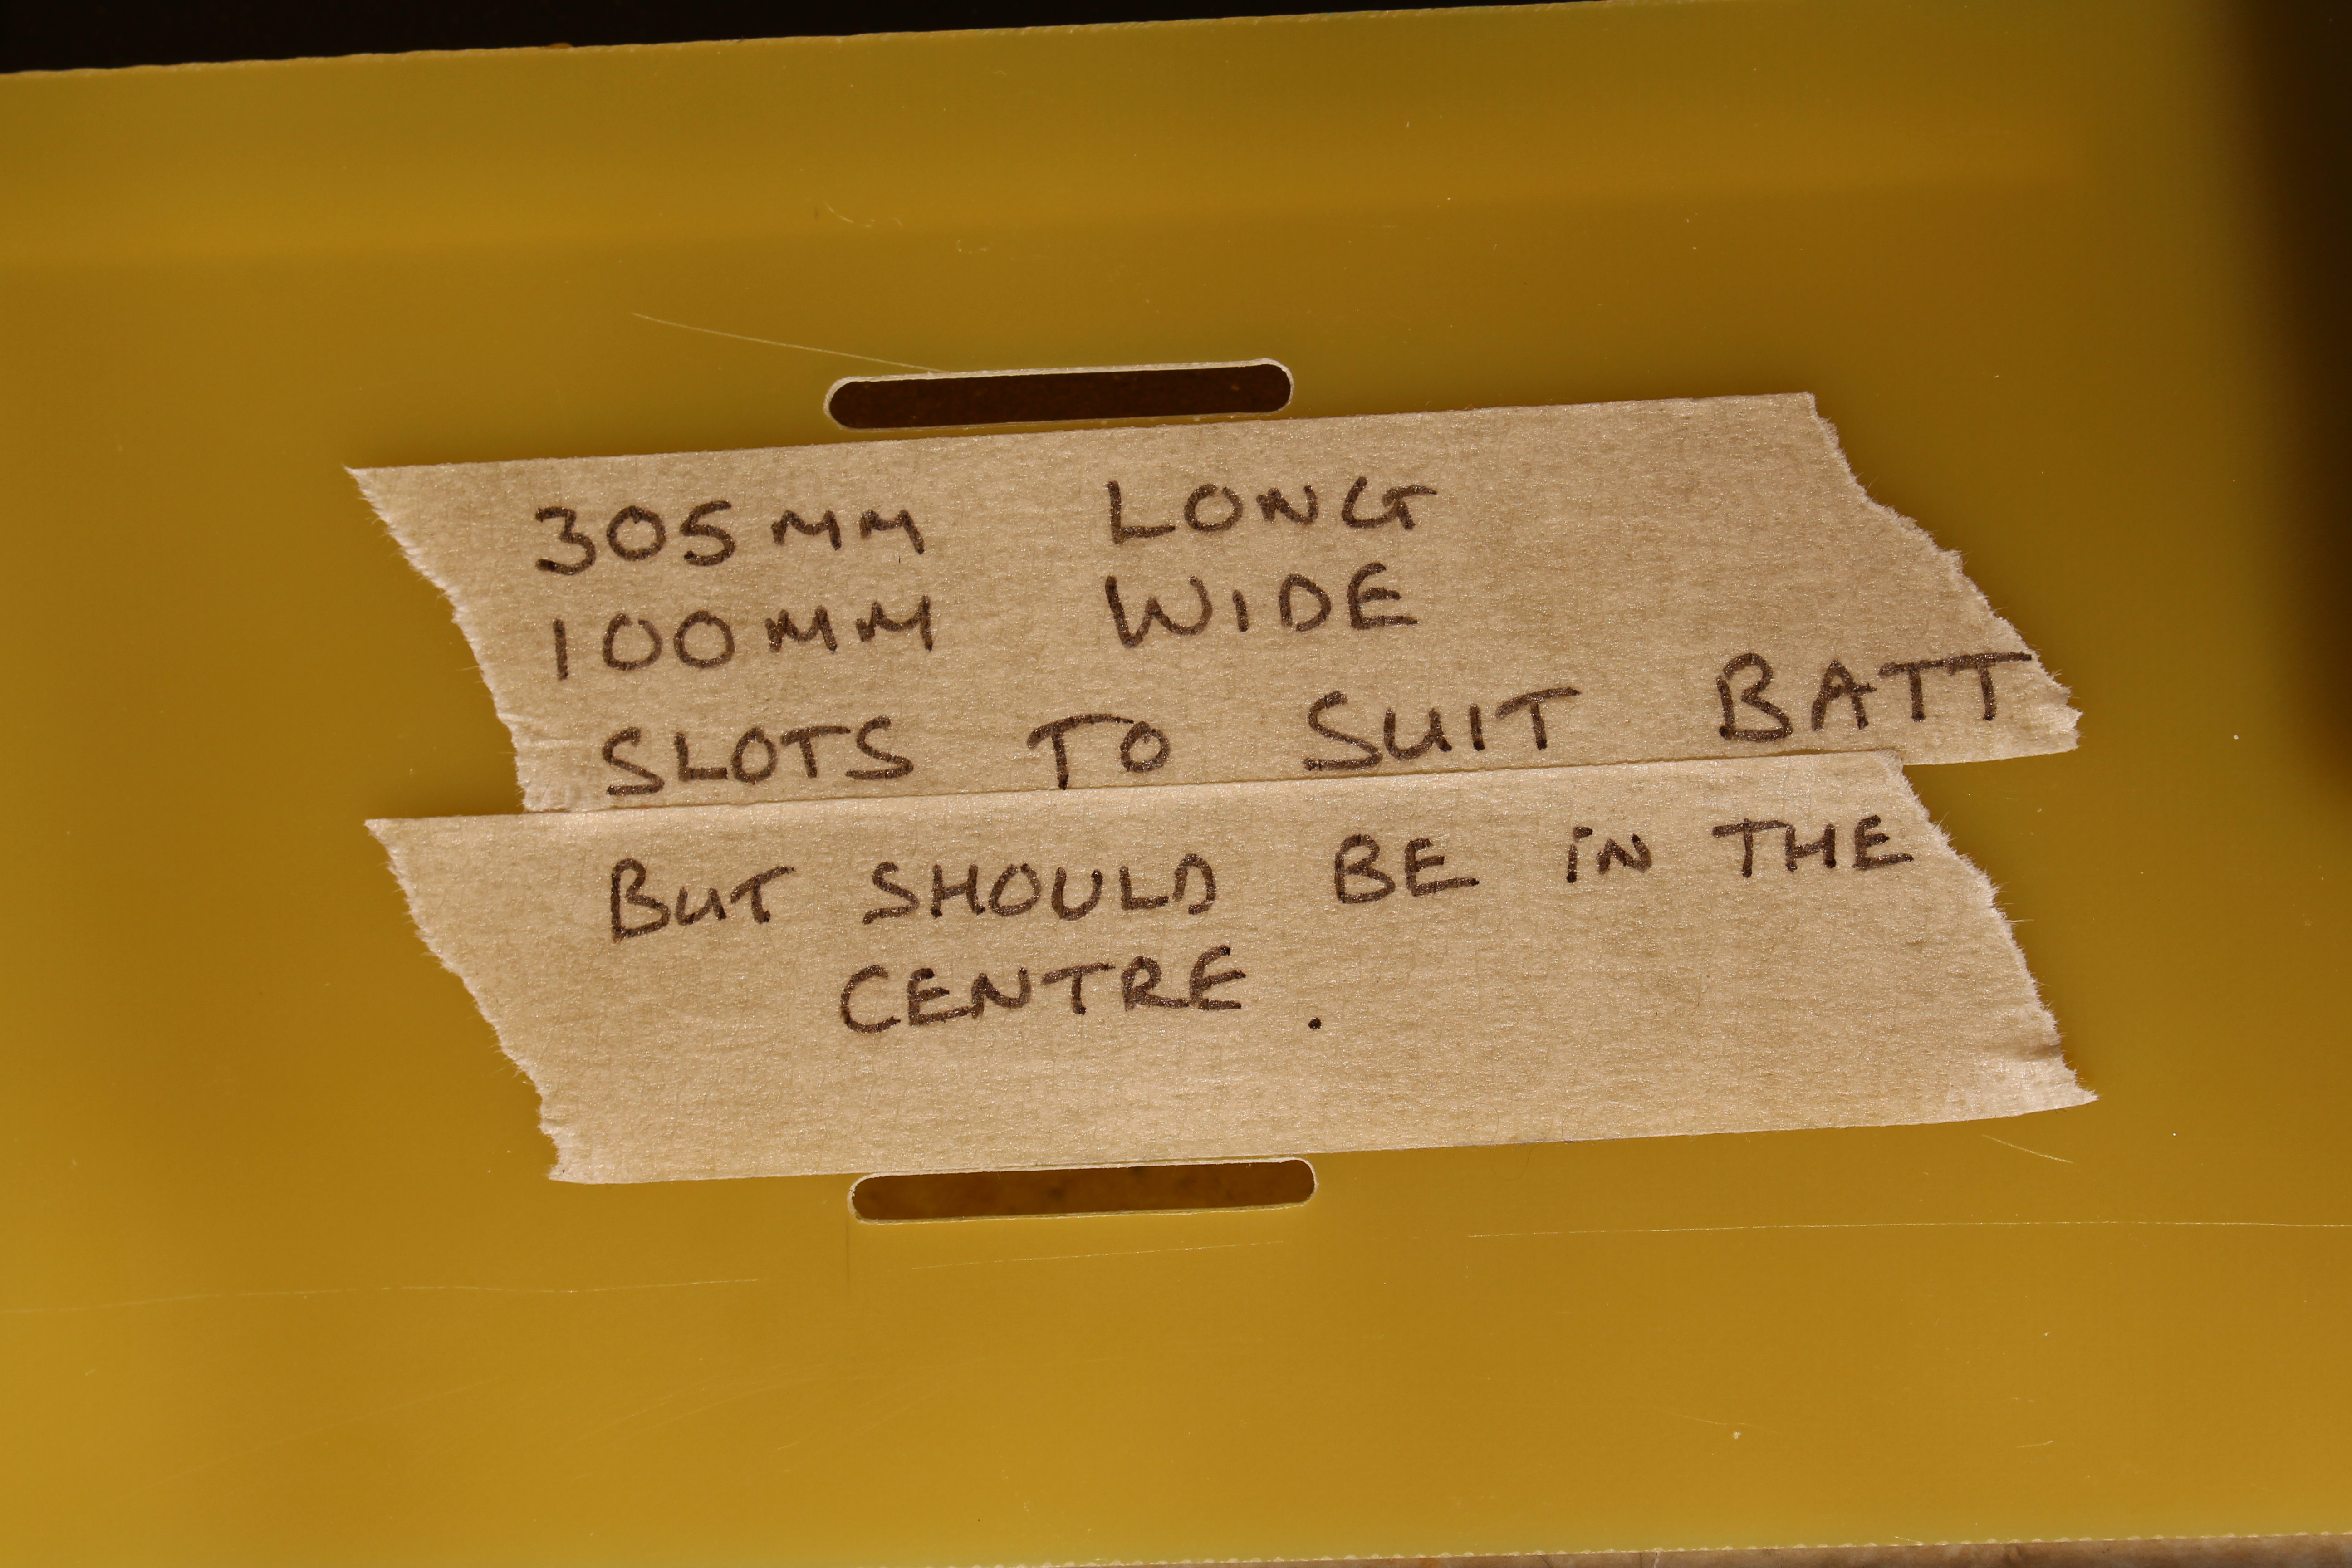 305MM LONG
100MM WIDE
SLOTS TO SUIT BATT
BUT SHOULD BE iN THE
CENTRE.